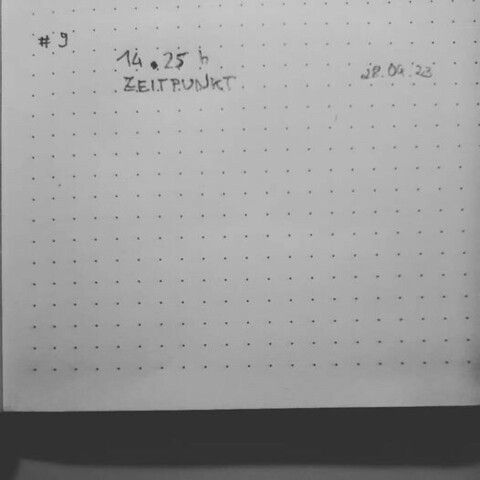 # 9
14.25 h
ZEITPUNKT
28.09.23